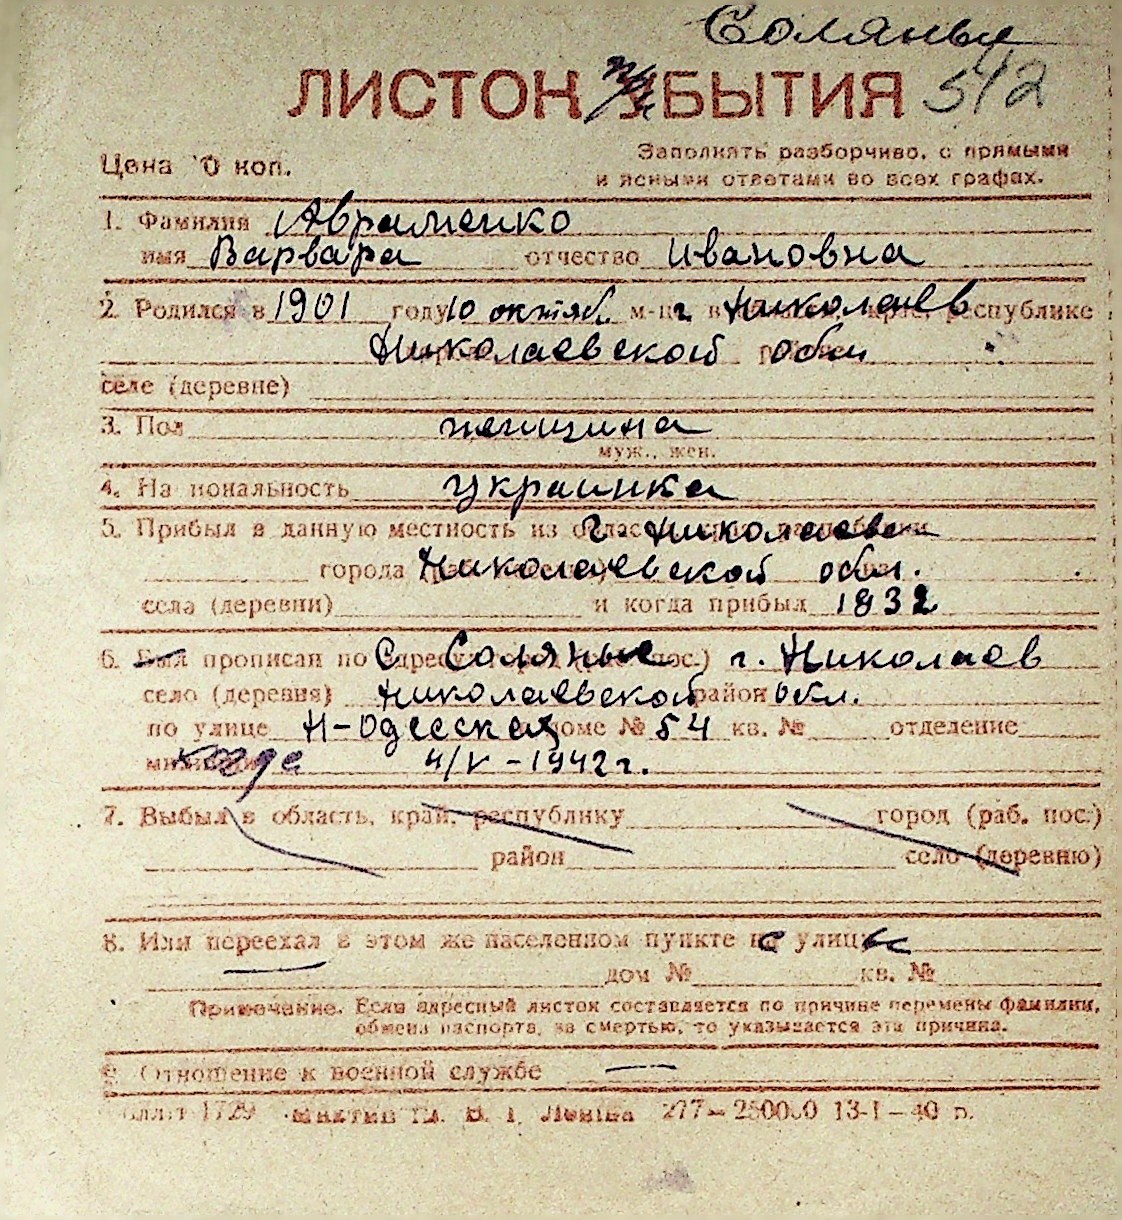 Соляные
ЛИСТОК ПРИБЫТИЯ 542
Цена 10 коп.
Заполнять разборчиво, с прямыми
и ясными ответами во всех графах.
1. Фамилия Авраменко
имя Варвара отчество Ивановна
2. Родился в 1901 году 10 октяб. м-ц г. Николаев республике
Николаевской обл
селе (деревне)
3. Пол женщина
муж., жен.
4. Национальность украинка
5. Прибыл в данную местность из г. Николаева
города Николаевской обл.
села (деревни) и когда прибыл 1932
6. Был прописан по С. Соляные пос.) г. Николаев
село (деревня) Николаевской район обл.
по улице Н-Одесская доме № 54 кв. № отделение
когда 4/V-1942 г.
7. Выбыл в область, край, республику город (раб. пос.)
район село (деревню)
8. Или переехал в этом же населенном пункте с улицы
дом № кв. №
Примечание. Если адресный листок составляется по причине перемены фамилии,
обмена паспорта, за смертью, то указывается эта причина.
9. Отношение к военной службе —
1729 Леніна 277—250000 13-I—40 р.